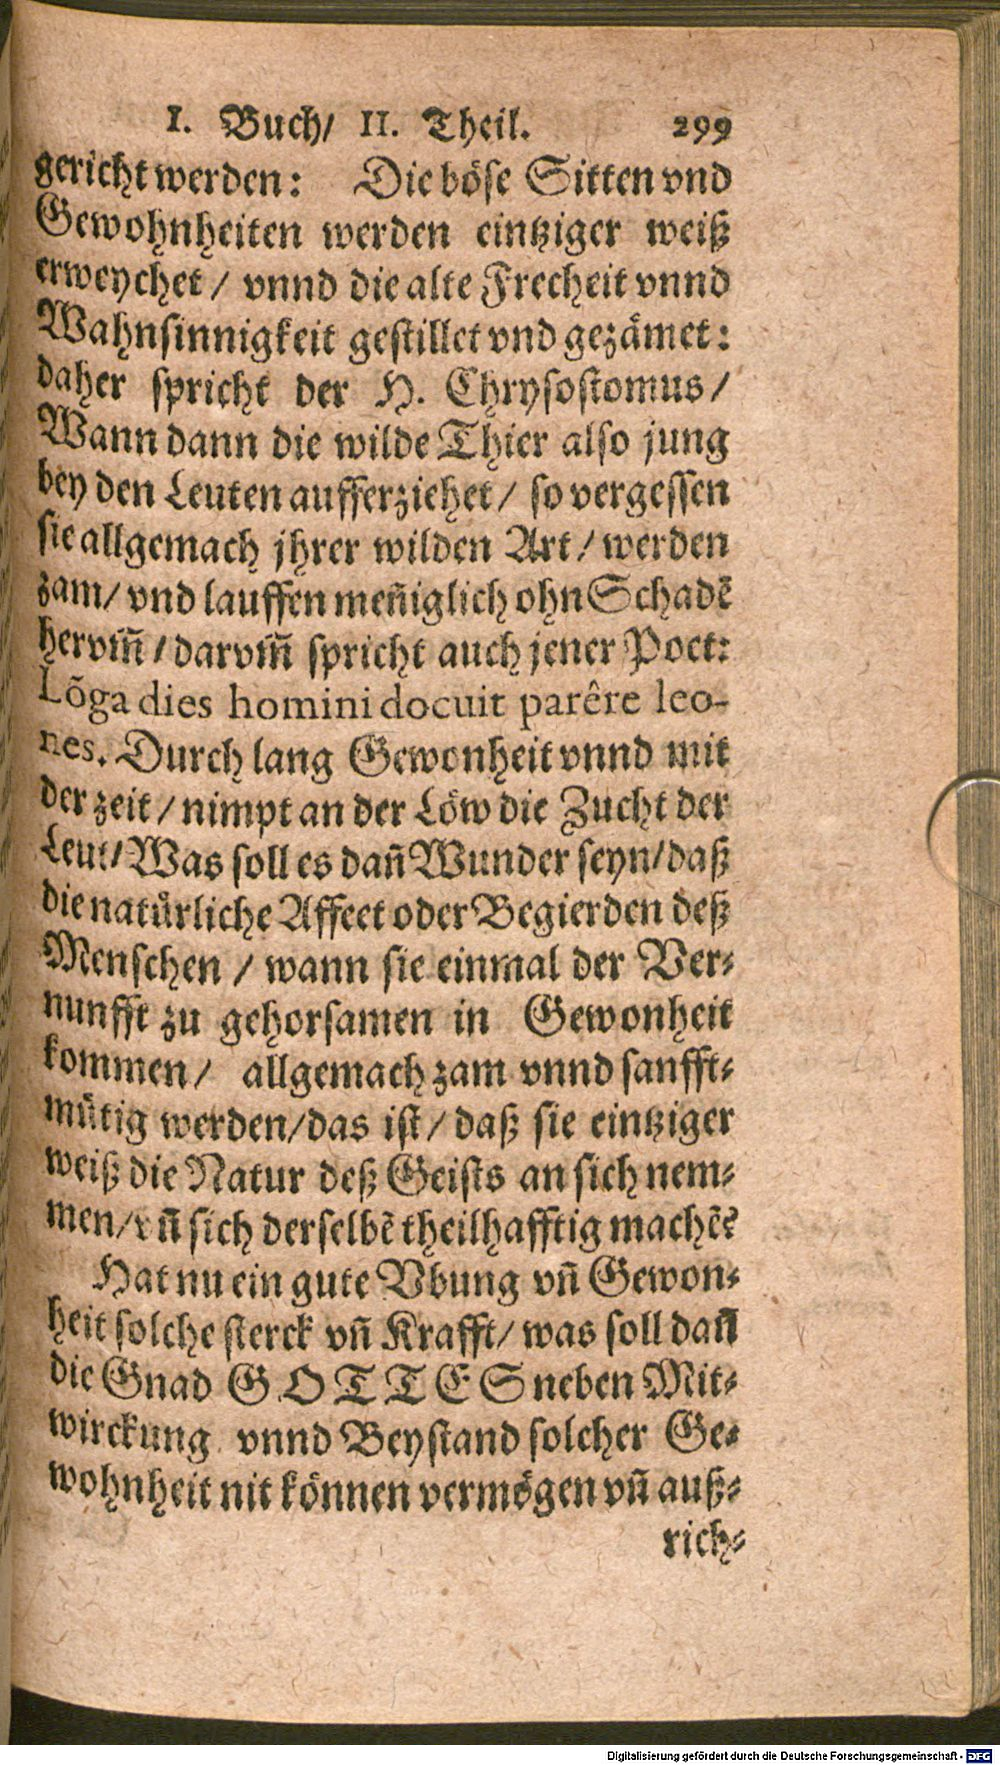 I. Buch/ II. Theil. 299
gericht werden: Die böse Sitten vnd
Gewohnheiten werden eintziger weiß
erweychet / vnnd die alte Frecheit vnnd
Wahnsinnigkeit gestillet vnd gezämet:
daher spricht der H. Chrysostomus/
Wann dann die wilde Thier also jung
bey den Leuten aufferziehet / so vergessen
sie allgemach jhrer wilden Art / werden
zam/ vnd lauffen meñiglich ohn Schadẽ
hervm̃ / darvm̃ spricht auch jener Poet:
Lõga dies homini docuit parêre leo-
nes. Durch lang Gewonheit vnnd mit
der zeit / nimpt an der Löw die Zucht der
Leut/ Was soll es dañ Wunder seyn/ daß
die natürliche Affect oder Begierden deß
Menschen / wann sie einmal der Ver-
nunfft zu gehorsamen in Gewonheit
kommen/ allgemach zam vnnd sanfft-
mütig werden/ das ist/ daß sie eintziger
weiß die Natur deß Geists an sich nem-
men/ vñ sich derselbẽ theilhafftig machẽ?
Hat nu ein gute Vbung vñ Gewon-
heit solche sterck vñ Krafft/ was soll dañ
die Gnad GOTTES neben Mit-
wirckung vnnd Beystand solcher Ge-
wohnheit nit können vermögen vñ auß-
rich-
Digitalisierung gefördert durch die Deutsche Forschungsgemeinschaft - DFG